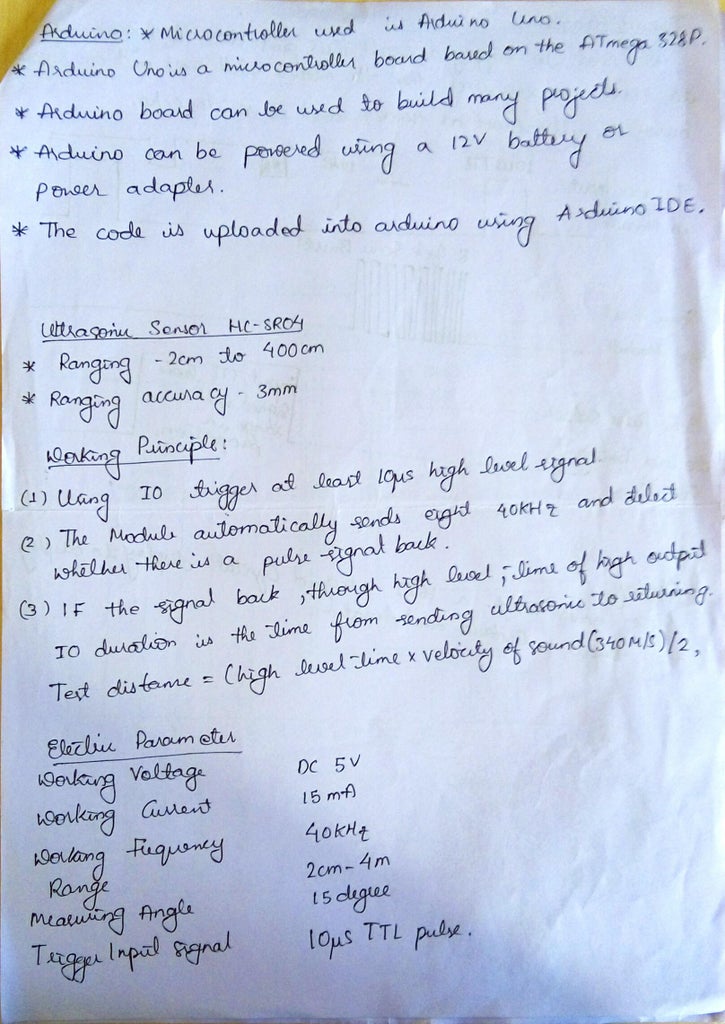 Arduino: * Microcontroller used is Arduino Uno.
* Arduino Uno is a microcontroller board based on the ATmega 328P.
* Arduino board can be used to build many projects.
* Arduino can be powered using a 12V battery or
power adapter.
* The code is uploaded into arduino using Arduino IDE.
Ultrasonic Sensor HC-SR04
* Ranging - 2cm to 400cm
* Ranging accuracy - 3mm
Working Principle:
(1) Using IO trigger at least 10μs high level signal.
(2) The Module automatically sends eight 40KHz and detect
whether there is a pulse signal back.
(3) IF the signal back, through high level, time of high output
IO duration is the time from sending ultrasonic to returning.
Test distance = (high level time × velocity of sound (340M/S)/2,
Electric Parameter
Working Voltage DC 5V
Working Current 15mA
Working Frequency 40KHz
Range 2cm-4m
Measuring Angle 15 degree
Trigger Input Signal 10μs TTL pulse.